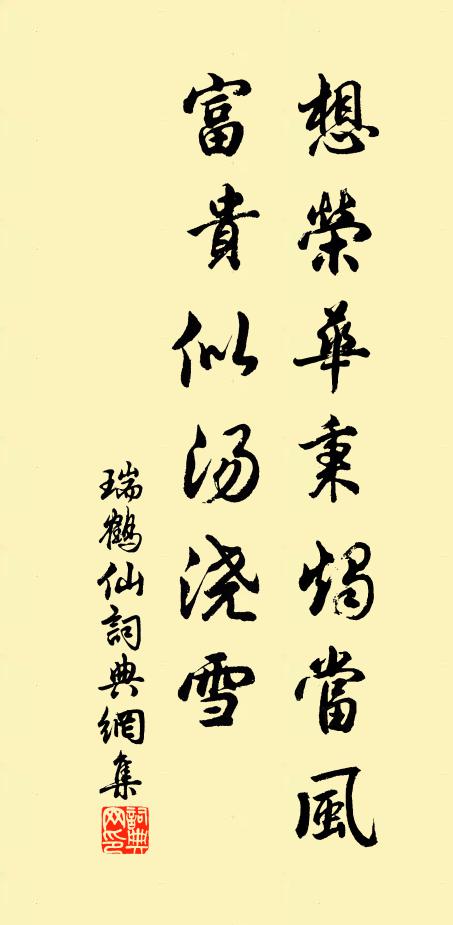 想榮華秉燭當風
富貴似汤浇雪
瑞鶴仙詞典網集
詞典网印